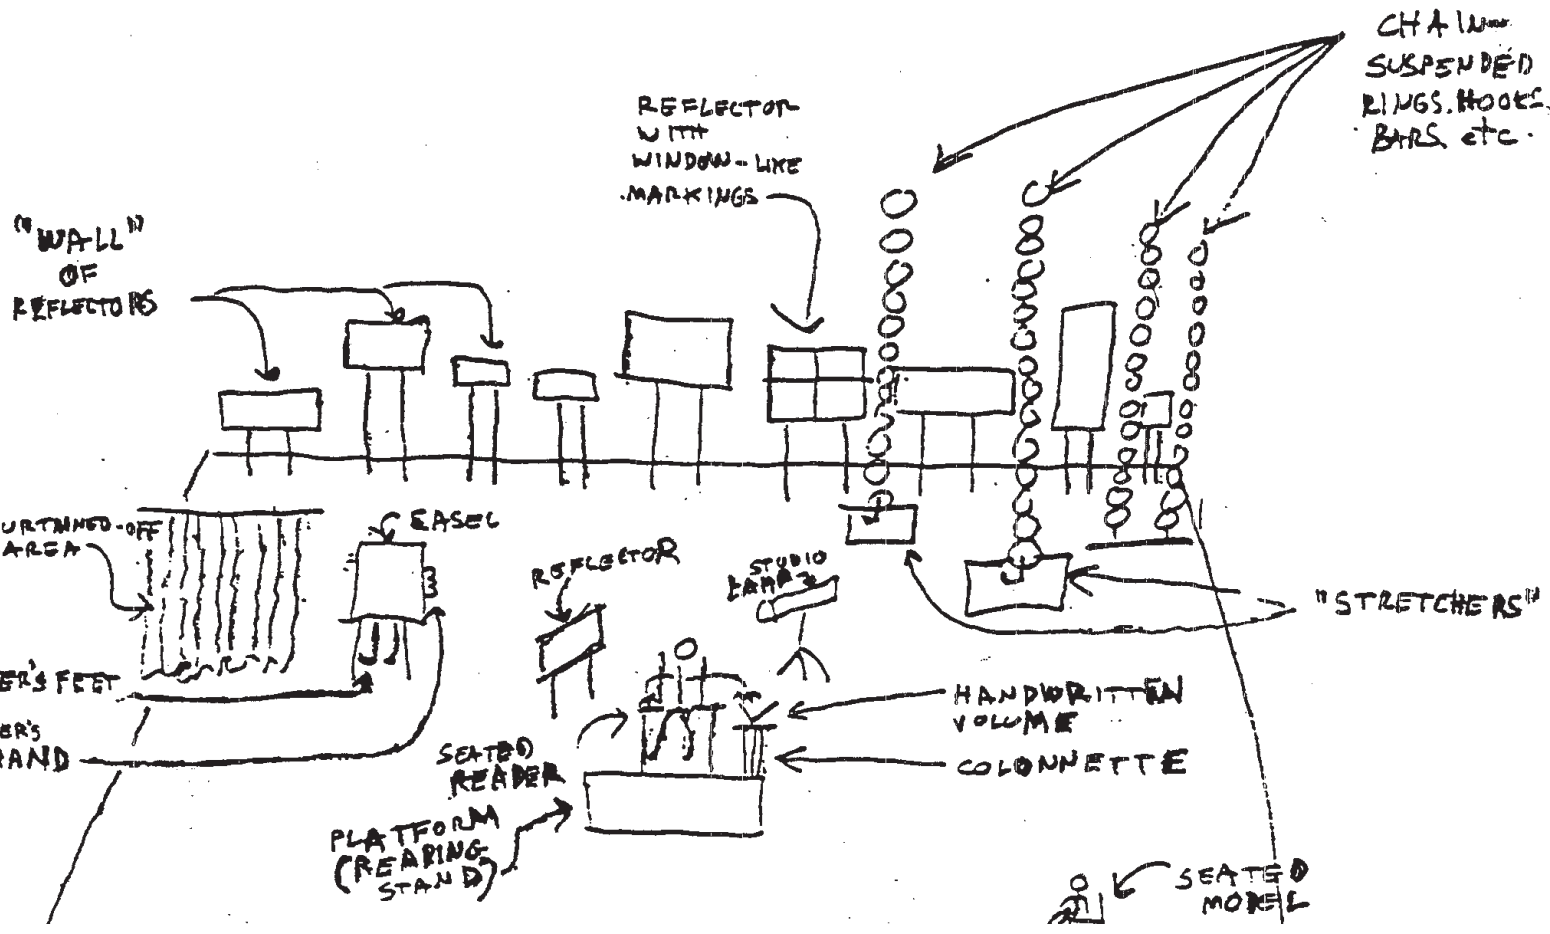 CHAIN-
SUSPENDED
RINGS. HOOKS.
BARS, etc.
REFLECTOR
WITH
WINDOW-LIKE
MARKINGS
"WALL"
OF
REFLECTORS
URTAINED-OFF
AREA
EASEL
REFLECTOR
STUDIO
LAMP
"STRETCHERS"
ER'S FEET
ER'S
HAND
HANDWRITTEN
VOLUME
COLONNETTE
SEATED
READER
PLATFORM
(READING
STAND)
SEATED
MODEL